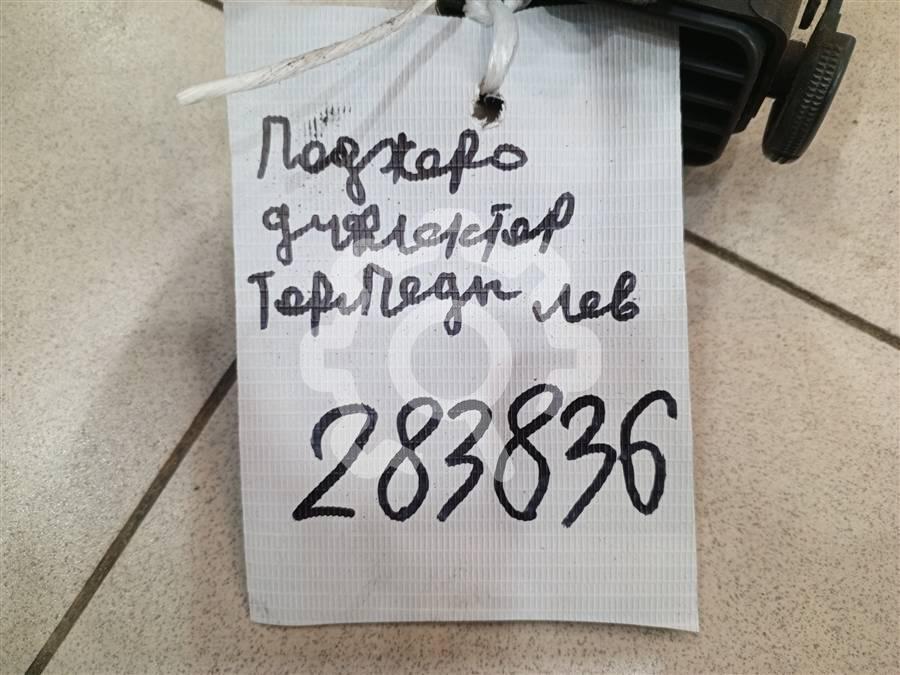 Паджеро
дифлектер
Терпеды лев
283836